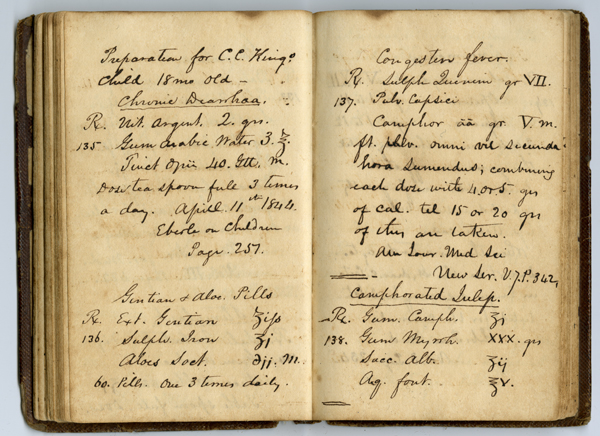 Preparation for C.C. King's
Child 18 mo old -
Chronic Diarrhaa.
Rx. Nit. Argent. 2. grs.
135 Gum Arabic Water 3. ℥.
Tinct Opii 40. Gtt. m.
Dose tea spoon full 3 times
a day. April 11th 1844.
Eberle on Children
Page. 257.
Gentian & Aloe. Pills
Rx. Ext. Gentian ʒiſs
136. Sulph. Iron ʒj
Aloes Soct. ℈jj. M.
60. Pills. One 3 times daily.
Congestive fever.
Rx. Sulph Quinin gr VII.
137. Pulv. Capsici
Camphor āā gr. V. m.
ft. pulv. omni secunda
hora sumendus; combining
each dose with 4 or 5. grs
of cal. til 15 or 20 grs
of this are taken.
Am Jour. Med Sci
New Ser. V.7.P. 342,
Camphorated Julep.
Rx. Gum. Camph. ʒj
138. Gum Myrrh. XXX. grs
Sacc. Alb. ʒij
Aq. font. ℥v.